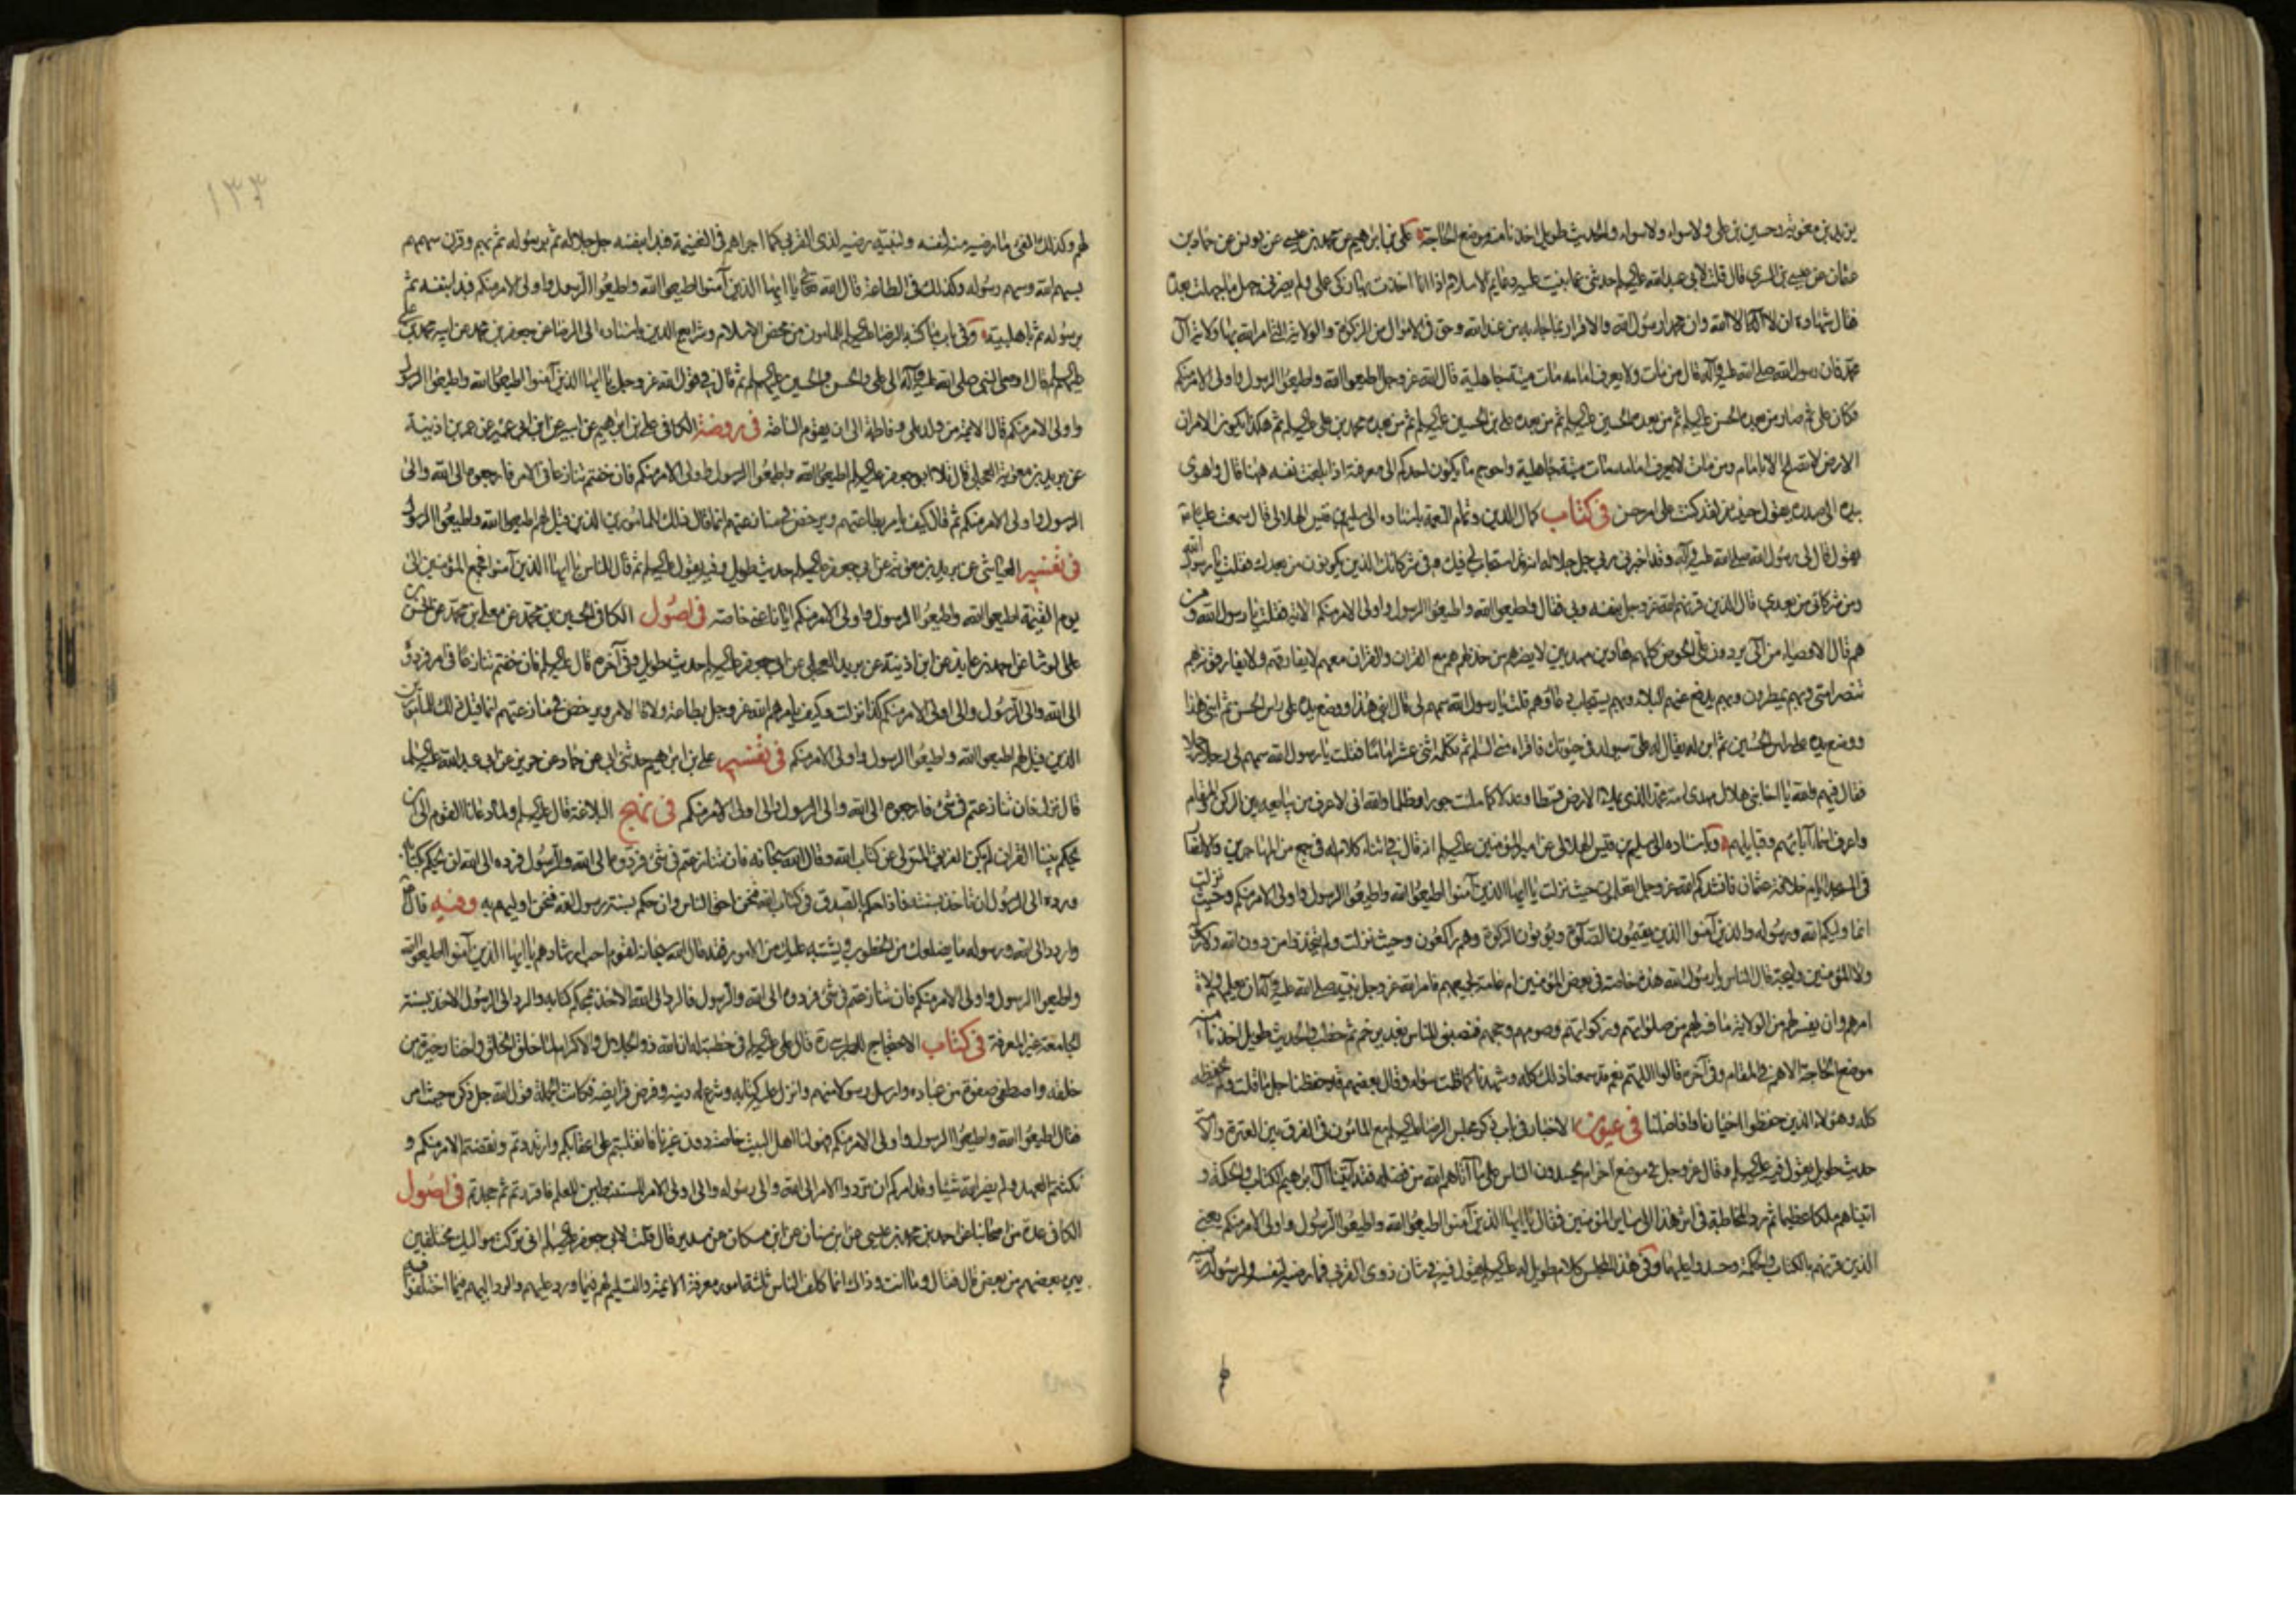 يزيد بن معوية وحسين بن على ولا سواء ولا سواء والحديث طويل اخذنا منه موضع الحاجة على بن ابراهيم عن محمد بن عيسى عن يونس عن حماد بن
عثمان عن عيسى بن السرى قال قلت لابى عبدالله عليه السلم حدثنى عما بنيت عليه دعايم الاسلام اذا انا اخذت بها زكى عملى ولم يضرنى جهل ما جهلت بعده
فقال شهادة ان لا اله الا الله وان محمدا رسول الله والاقرار بما جاء به من عند الله وحق فى الاموال من الزكوة والولاية التى امر الله بها ولاية آل
محمد فان رسول الله صلى الله عليه وآله قال من مات ولا يعرف امامه مات ميتة جاهلية قال الله عز وجل اطيعوا الله واطيعوا الرسول واولى الامر منكم
فكان على ثم صار من بعده الحسن عليه السلم ثم من بعده الحسين عليه السلم ثم من بعده على بن الحسين عليه السلم ثم من بعده محمد بن على عليه السلم ثم هكذا يكون الامر ان
الارض لا تصلح الا بامام ومن مات لا يعرف امامه مات ميتة جاهلية واحوج ما يكون احدكم الى معرفته اذا بلغت نفسه ههنا قال واهوى
بيده الى صدره يقول حينئذ لقد كنت على امر حسن فى كتاب كمال الدين وتمام النعمة باسناده الى سليم بن قيس الهلالى قال سمعت عليا
يقول قال لى رسول الله صلى الله عليه وآله وقد اخبرنى ربى جل جلاله انه قد استجاب لى فيك وفى شركائك الذين يكونون من بعدك فقلت يا رسول الله
ومن شركائى من بعدى قال الذين قرنهم الله عز وجل بنفسه وبى فقال اطيعوا الله واطيعوا الرسول واولى الامر منكم الاية فقلت يا رسول الله ومن
هم قال الاوصياء من آلى يردون على الحوض كلهم هادين مهديين لا يضرهم من خذلهم هم مع القران والقران معهم لا يفارقهم ولا يفارقونه بهم
تنصر امتى وبهم يمطرون وبهم يدفع عنهم البلاء وبهم يستجاب دعاؤهم قلت يا رسول الله سمهم لى قال ابنى هذا ووضع يده على راس الحسن ثم ابنى هذا
ووضع يده على راس الحسين ثم ابن له يقال له على سيولد فى حيوتك فاقراه منى السلم ثم تكمله اثنى عشر اماما فقلت يا رسول الله سمهم لى رجلا رجلا
فقال فيهم والله يا اخا بنى هلال مهدى امة محمد الذى يملأ الارض قسطا وعدلا كما ملئت جورا وظلما والله انى لاعرف من يبايعه بين الركن والمقام
واعرف اسماء آبائهم وقبايلهم وباسناده الى سليم بن قيس الهلالى عن امير المؤمنين عليه السلم انه قال فى اثناء كلام له فى جمع من المهاجرين والانصار
فى المسجد ايام خلافة عثمان فانشدكم الله عز وجل اتعلمون حيث نزلت يا ايها الذين آمنوا اطيعوا الله واطيعوا الرسول واولى الامر منكم وحيث نزلت
انما وليكم الله ورسوله والذين آمنوا الذين يقيمون الصلوة ويؤتون الزكوة وهم راكعون وحيث نزلت ولم يتخذوا من دون الله ولا رسوله
ولا المؤمنين وليجة قال الناس يا رسول الله هذه خاصة فى بعض المؤمنين ام عامة لجميعهم فامر الله عز وجل نبيه صلى الله عليه وآله ان يعلمهم ولاة
امرهم وان يفسر لهم من الولاية ما فسر لهم من صلوتهم وزكوتهم وصومهم وحجهم فنصبنى للناس بغدير خم ثم خطب والحديث طويل اخذنا منه
موضع الحاجة الاهم فى المقام وفى آخره قالوا اللهم نعم قد سمعنا ذلك كله وشهدنا كما قلت سواء وقال بعضهم قد حفظنا جل ما قلت ولم نحفظه
كله وهؤلاء الذين حفظوا اخيارنا وافاضلنا فى عيون الاخبار فى باب ذكر مجلس الرضا عليه السلم مع المأمون فى الفرق بين العترة والامة
حديث طويل يقول فيه عليه السلم وقال عز وجل فى موضع آخر ام يحسدون الناس على ما آتاهم الله من فضله فقد آتينا آل ابرهيم الكتاب والحكمة و
اتيناهم ملكا عظيما ثم رد المخاطبة فى اثر هذا الى ساير المؤمنين فقال يا ايها الذين آمنوا اطيعوا الله واطيعوا الرسول واولى الامر منكم يعنى
الذين قرنهم بالكتاب والحكمة وحسدوا عليهما وفى هذا المجلس كلام طويل له عليه السلم يقول فيه فى شان ذوى القربى فما رضيه لنفسه ولرسوله رضيه
١٣٣
لهم وكذلك الفىء ما رضيه منه لنفسه ولنبيه رضيه لذى القربى كما اجراهم فى الغنيمة فبدا بنفسه جل جلاله ثم برسوله ثم بهم وقرن سهمهم
بسهم الله وسهم رسوله وكذلك فى الطاعة قال الله تعالى يا ايها الذين آمنوا اطيعوا الله واطيعوا الرسول واولى الامر منكم فبدا بنفسه ثم
برسوله ثم باهل بيته وفى باب ما كتبه الرضا عليه السلم للمأمون من محض الاسلام وشرايع الدين باسناده الى الرضا عن جعفر بن محمد عن ابيه محمد بن على
عليهم السلم قال اوصى النبى صلى الله عليه وآله الى على والحسن والحسين عليهم السلم ثم قال فى قول الله عز وجل يا ايها الذين آمنوا اطيعوا الله واطيعوا الرسول
واولى الامر منكم قال الائمة من ولد على وفاطمة الى ان يقوم الساعة فى روضة الكافى على بن ابراهيم عن ابيه عن ابن ابى عمير عن عمر بن اذينة
عن بريد بن معوية العجلى قال تلا ابو جعفر عليه السلم اطيعوا الله واطيعوا الرسول واولى الامر منكم فان خفتم تنازعا فى الامر فارجعوه الى الله والى
الرسول واولى الامر منكم ثم قال كيف يامر بطاعتهم ويرخص فى منازعتهم انما قال ذلك للمامورين الذين قيل لهم اطيعوا الله واطيعوا الرسول
فى تفسير العياشى عن بريد بن معوية عن ابى جعفر عليه السلم حديث طويل وفيه يقول عليه السلم ثم قال للناس يا ايها الذين آمنوا فجمع المؤمنين الى
يوم القيمة اطيعوا الله واطيعوا الرسول واولى الامر منكم ايانا عنى خاصة فى اصول الكافى الحسين بن محمد عن معلى بن محمد عن الحسن بن
على الوشا عن احمد بن عايذ عن ابن اذينة عن بريد العجلى عن ابى جعفر عليه السلم حديث طويل وفى آخره قال عليه السلم فان خفتم تنازعا فى امر فردوه
الى الله والى الرسول والى اولى الامر منكم كذا نزلت وكيف يامرهم الله عز وجل بطاعة ولاة الامر ويرخص فى منازعتهم انما قيل ذلك للمامورين
الذين قيل لهم اطيعوا الله واطيعوا الرسول واولى الامر منكم فى تفسير على بن ابراهيم حدثنى ابى عن حماد عن حريز عن ابى عبدالله عليه السلم
قال نزل فان تنازعتم فى شىء فارجعوه الى الله والى الرسول والى اولى الامر منكم فى نهج البلاغة قال عليه السلم ولما دعانا القوم الى ان
نحكم بيننا القران لم نكن الفريق المتولى عن كتاب الله وقال الله سبحانه فان تنازعتم فى شىء فردوه الى الله والرسول فرده الى الله ان نحكم بكتابه
ورده الى الرسول ان ناخذ بسنته فاذا حكم بالصدق فى كتاب الله فنحن احق الناس وان حكم بسنة رسول الله فنحن اوليهم به وفيه قال
واردد الى الله ورسوله ما يضلعك من الخطوب ويشتبه عليك من الامور فقد قال الله سبحانه لقوم احب ارشادهم يا ايها الذين آمنوا اطيعوا الله
واطيعوا الرسول واولى الامر منكم فان تنازعتم فى شىء فردوه الى الله والرسول فالرد الى الله الاخذ بمحكم كتابه والرد الى الرسول الاخذ بسنته
الجامعة غير المفرقة فى كتاب الاحتجاج للطبرسى قال على عليه السلم فى خطبة له ان الله ذو الجلال والاكرام لما خلق الخلق واختار خيرة من
خلقه واصطفى صفوة من عباده وارسل رسولا منهم وانزل عليه كتابه وشرع له دينه وفرض فرايضه فكانت الجملة قول الله جل ذكره حيث امر
فقال اطيعوا الله واطيعوا الرسول واولى الامر منكم فهو لنا اهل البيت خاصة دون غيرنا فانقلبتم على اعقابكم وارتددتم ونقضتم الامر منكم و
نكثتم العهد ولم يضر الله شيئا وقد امركم ان تردوا الامر الى الله والى رسوله والى اولى الامر المستنبطين للعلم فاقررتم ثم جحدتم فى اصول
الكافى عدة من اصحابنا عن احمد بن محمد بن عيسى عن ابن سنان عن ابن مسكان عن سدير قال قلت لابى جعفر عليه السلم انى تركت مواليك مختلفين
يبرء بعضهم من بعض قال فقال وما انت وذاك انما كلف الناس ثلثة امور معرفة الائمة والتسليم لهم فيما ورد عليهم والرد اليهم فيما اختلفوا فيه